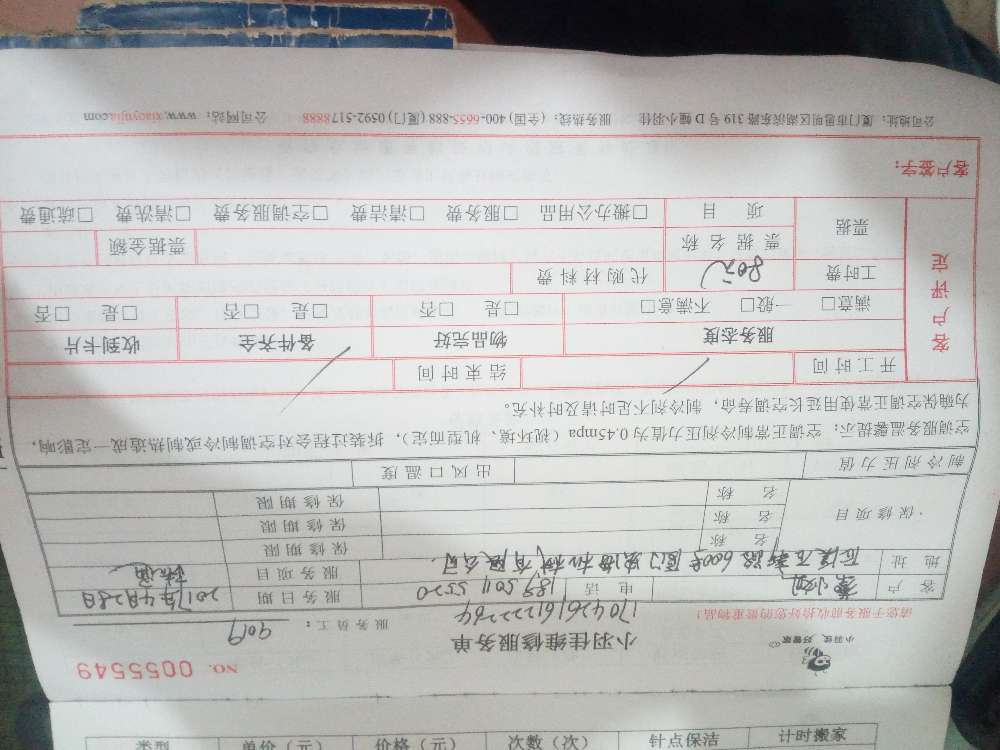 小羽佳 好管家
小羽佳维修服务单
NO. 0055549
请您于服务前收拾好您的贵重物品!
17042616122264
服务员工: 9019
客户 小 电话 189 5011 5520 服务日期 2017年4月28日
地址 后溪石 路600号厦门 机械有限公司. 服务项目
保修项目 名称 保修期限
名称 保修期限
名称 保修期限
制冷剂压力值 出风口温度
空调服务温馨提示: 空调正常制冷剂压力值为0.45mpa(视环境、机型而定), 拆装过程会对空调制冷或制热造成一定影响,
为确保空调正常使用延长空调寿命, 制冷剂不足时请及时补充。
客户评定
开工时间 结束时间
服务态度 物品完好 备件齐全 收到卡片
满意□ 一般□ 不满意□ □是 □否 □是 □否 □是 □否
工时费 80元 代购材料费
票据 票据名称 票据金额
项目 □搬办公用品 □服务费 □清洁费 □空调服务费 □清洗费 □疏通费
客户签字:
公司地址: 厦门市思明区湖滨东路319号D幢小羽佳 服务热线: (全国) 400-6655-888 (厦门) 0592-5178888 公司网站: www.xiaoyujia.com
类型 单价(元) 价格(元) 次数(次) 针点保洁 计时搬家